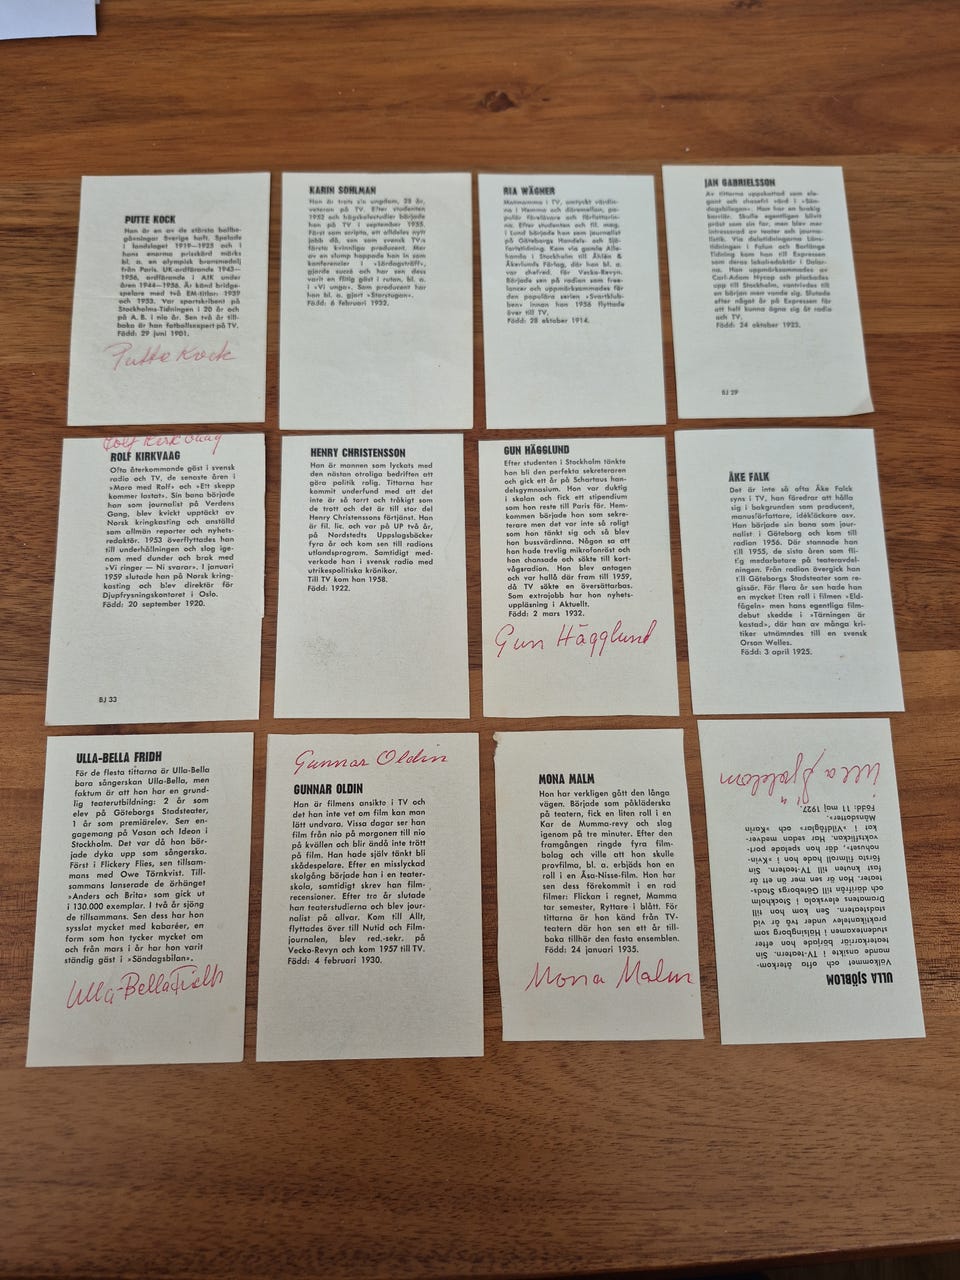 PUTTE KOCK
Han är en av de största bollbe-
gåvningar Sverige haft. Spelade
i landslaget 1919—1925 och i
hans enorma prisskörd märks
bl. a. en olympisk bronsmedalj
från Paris. UK-ordförande 1943—
1956, ordförande i AIK under
åren 1944—1956. Är känd bridge-
spelare med två EM-titlar: 1939
och 1952. Var sportskribent på
Stockholms-Tidningen i 20 år och
på A. B. i nio år. Sen två år till-
baka är han fotbollsexpert på TV.
Född: 29 juni 1901.
Putte Kock
KARIN SOHLMAN
Han är trots sin ungdom, 28 år,
veteran på TV. Efter studenten
1952 och högskolestudier började
hon på TV i september 1955.
Först som scripta, ett alldeles nytt
jobb då, sen som svensk TV:s
första kvinnliga producent. Mer
av en slump hoppade hon in som
konferencier i »Lördagsträff»,
gjorde succé och har sen dess
varit en flitig gäst i rutan, bl. a.
i »Vi unga». Som producent har
hon bl. a. gjort »Storstugan».
Född: 6 februari 1932.
RIA WÄGNER
Matmamma i TV, omtyckt värdin-
na i Hemma och däremellan, po-
pulär föreläsare och författarin-
na. Efter studenten och fil. mag.
i Lund började hon som journalist
på Göteborgs Handels- och Sjö-
fartstidning. Kom via gamla Alle-
handa i Stockholm till Åhlén &
Åkerlunds Förlag, där hon bl. a.
var chefred. för Vecko-Revyn.
Började sen på radion som free-
lancer och uppmärksammades för
den populära serien »Svartklub-
ben» innan hon 1956 flyttade
över till TV.
Född: 28 oktober 1914.
JAN GABRIELSSON
Av tittarna uppskattad som ele-
gant och chosefri värd i »Sön-
dagsbilagan». Han har en brokig
karriär. Skulle egentligen blivit
präst som sin far, men blev mer
intresserad av teater och journa-
listik. Via deltidningarna Läns-
tidningen i Falun och Borlänge
Tidning kom han till Expressen
som deras lokalredaktör i Dalar-
na. Han uppmärksammades av
Carl-Adam Nycop och plockades
upp till Stockholm, vantrivdes till
en början men vande sig. Slutade
efter något år på Expressen för
att helt kunna ägna sig åt radio
och TV.
Född: 24 oktober 1922.
BJ 29
Rolf Kirkvaag
ROLF KIRKVAAG
Ofta återkommande gäst i svensk
radio och TV, de senaste åren i
»Moro med Rolf» och »Ett skepp
kommer lastat». Sin bana började
han som journalist på Verdens
Gang, blev kvickt upptäckt av
Norsk kringkasting och anställd
som allmän reporter och nyhets-
redaktör. 1953 överflyttades han
till underhållningen och slog ige-
nom med dunder och brak med
»Vi ringer — Ni svarar». I januari
1959 slutade han på Norsk kring-
kasting och blev direktör för
Djupfrysningskontoret i Oslo.
Född: 20 september 1920.
BJ 33
HENRY CHRISTENSSON
Han är mannen som lyckats med
den nästan otroliga bedriften att
göra politik rolig. Tittarna har
kommit underfund med att det
inte är så torrt och tråkigt som
de trott och det är till stor del
Henry Christenssons förtjänst. Han
är fil. lic. och var på UP två år,
på Nordstedts Uppslagsböcker
fyra år och kom sen till radions
utlandsprogram. Samtidigt med-
verkade han i svensk radio med
utrikespolitiska krönikor.
Till TV kom han 1958.
Född: 1922.
GUN HÄGGLUND
Efter studenten i Stockholm tänkte
hon bli den perfekta sekreteraren
och gick ett år på Schartaus han-
delsgymnasium. Hon var duktig
i skolan och fick ett stipendium
som hon reste till Paris för. Hem-
kommen började hon som sekre-
terare men det var inte så roligt
som hon tänkt sig och så blev
hon bussvärdinna. Någon sa att
hon hade trevlig mikrofonröst och
hon chansade och sökte till kort-
vågsradion. Hon blev antagen
och var hallå där fram till 1959,
då TV sökte en översättarbas.
Som extrajobb har hon nyhets-
uppläsning i Aktuellt.
Född: 2 mars 1932.
Gun Hägglund
ÅKE FALK
Det är inte så ofta Åke Falck
syns i TV, han föredrar att hålla
sig i bakgrunden som producent,
manusförfattare, idékläckare osv.
Han började sin bana som jour-
nalist i Göteborg och kom till
radion 1956. Där stannade han
till 1955, de sista åren som fli-
tig medarbetare på teateravdel-
ningen. Från radion övergick han
till Göteborgs Stadsteater som re-
gissör. För flera år sen hade han
en mycket liten roll i filmen »Eld-
fågeln» men hans egentliga film-
debut skedde i »Tärningen är
kastad», där han av många kri-
tiker utnämndes till en svensk
Orson Welles.
Född: 3 april 1925.
ULLA-BELLA FRIDH
För de flesta tittarna är Ulla-Bella
bara sångerskan Ulla-Bella, men
faktum är att hon har en grund-
lig teaterutbildning: 2 år som
elev på Göteborgs Stadsteater,
1 år som premiärelev. Sen en-
gagemang på Vasan och Ideon i
Stockholm. Det var då hon bör-
jade dyka upp som sångerska.
Först i Flickery Flies, sen tillsam-
mans med Owe Törnkvist. Till-
sammans lanserade de örhänget
»Anders och Brita» som gick ut
i 130.000 exemplar. I två år sjöng
de tillsammans. Sen dess har hon
sysslat mycket med kabaréer, en
form som hon tycker mycket om
och från mars i år har hon varit
ständig gäst i »Söndagsbilan».
Ulla-Bella Fridh
Gunnar Oldin
GUNNAR OLDIN
Han är filmens ansikte i TV och
det han inte vet om film kan man
lätt undvara. Vissa dagar ser han
film från nio på morgonen till nio
på kvällen och blir ändå inte trött
på film. Han hade själv tänkt bli
skådespelare. Efter en misslyckad
skolgång började han i en teater-
skola, samtidigt skrev han film-
recensioner. Efter tre år slutade
han teaterstudierna och blev jour-
nalist på allvar. Kom till Allt,
flyttades över till Nutid och Film-
journalen, blev red.-sekr. på
Vecko-Revyn och kom 1957 till TV.
Född: 4 februari 1930.
MONA MALM
Hon har verkligen gått den långa
vägen. Började som påkläderska
på teatern, fick en liten roll i en
Kar de Mumma-revy och slog
igenom på tre minuter. Efter den
framgången ringde fyra film-
bolag och ville att hon skulle
provfilma, bl. a. erbjöds hon en
roll i en Åsa-Nisse-film. Hon har
sen dess förekommit i en rad
filmer: Flickan i regnet, Mamma
tar semester, Ryttare i blått. För
tittarna är hon känd från TV-
teatern där hon sen ett år till-
baka tillhör den fasta ensemblen.
Född: 24 januari 1935.
Mona Malm
ULLA SJÖBLOM
Välkommet och ofta återkom-
mande ansikte i TV-teatern. Sin
teaterkarriär började hon efter
studentexamen i Hälsingborg som
praktikantelev under två år vid
stadsteatern. Sen kom hon till
Dramatens elevskola i Stockholm
och därifrån till Göteborgs Stads-
teater. Hon är sen mer än ett år
fast knuten till TV-teatern. Sin
första filmroll hade hon i »Kvin-
nohuset», där hon spelade port-
vaktsflickan. Har sedan medver-
kat i »Vildfåglar» och »Karin
Månsdotter».
Född: 11 maj 1927.
Ulla Sjöblom